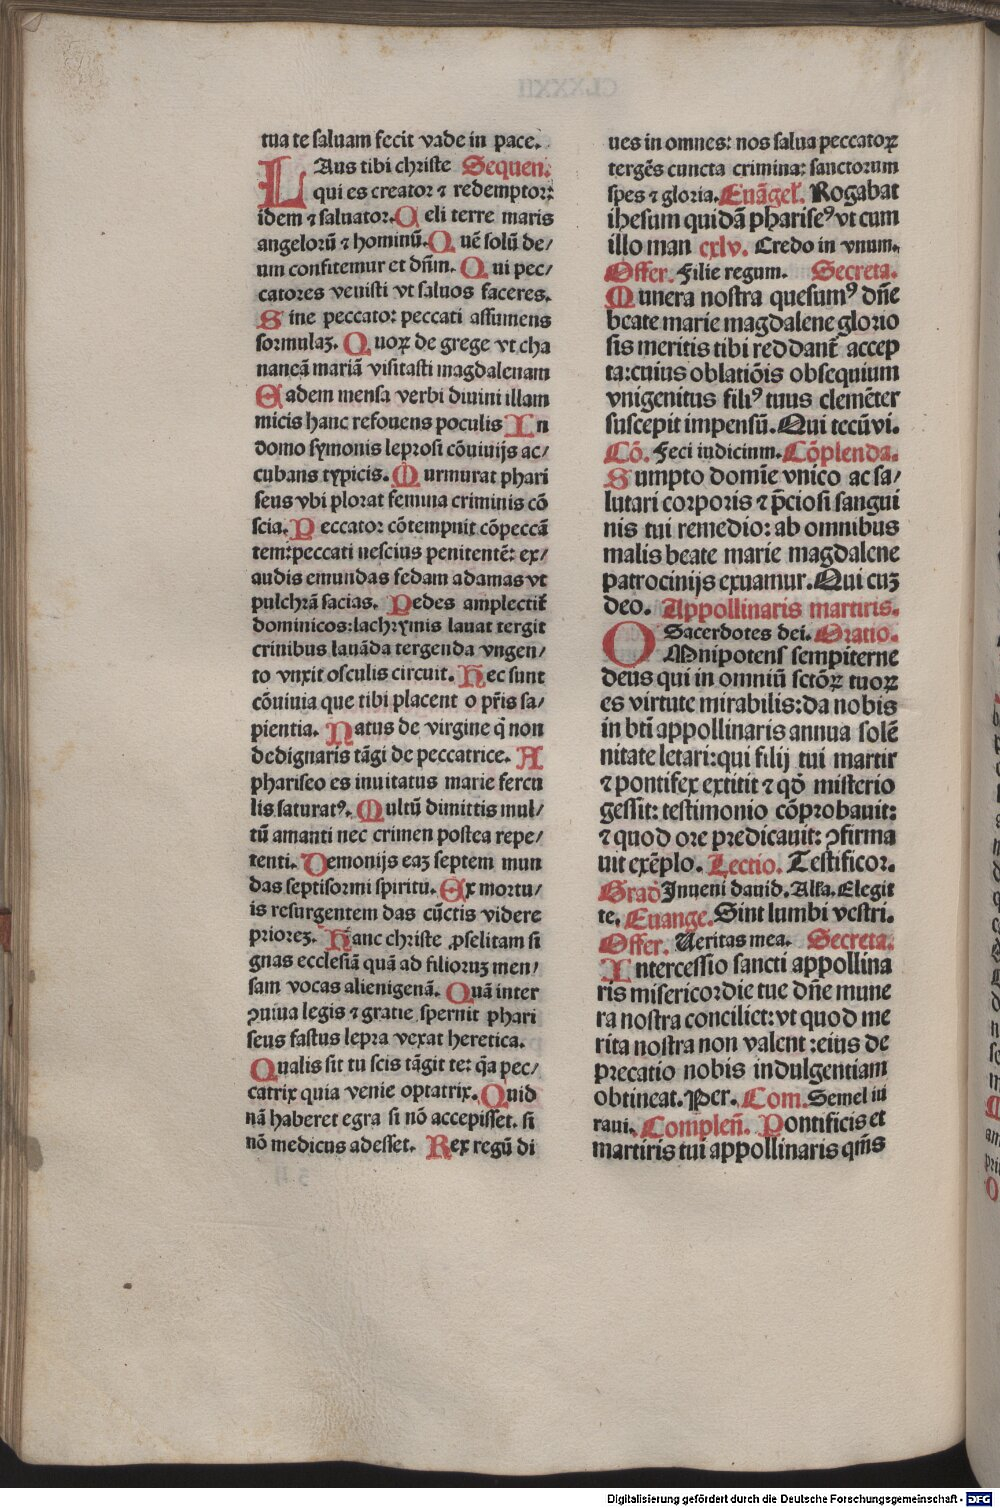 tua te saluam fecit vade in pace.
LAus tibi christe Sequen.
qui es creator ⁊ redemptor:
idem ⁊ saluator. Celi terre maris
angelorū ⁊ hominū. Quē solū de/
um confitemur et dn̄m. Qui pec/
catores venisti vt saluos faceres.
Sine peccato: peccati assumens
formulaꝫ. Quoꝝ de grege vt cha
naneā mariā visitasti magdalenam
Eadem mensa verbi diuini illam
micis hanc refouens poculis In
domo symonis leprosi cōuiuijs ac/
cubans typicis. Murmurat phari
seus vbi plorat femina criminis cō
scia. Peccator cōtempnit cōpeccā
tem: peccati nescius penitentē: ex/
audis emundas fedam adamas vt
pulchrā facias. Pedes amplectit᷑
dominicos: lachrymis lauat tergit
crinibus lauāda tergenda vngen/
to vnxit osculis circuit. Hec sunt
cōuiuia que tibi placent o pr̄is sa/
pientia. Natus de virgine q̄ non
dedignaris tāgi de peccatrice. A
phariseo es inuitatus marie fercu
lis saturatꝰ. Multū dimittis mul/
tū amanti nec crimen postea repe/
tenti. Demonijs eaꝫ septem mun
das septiformi spiritu. Ex mortu/
is resurgentem das cūctis videre
prioreꝫ. Hanc christe ꝓselitam si
gnas ecclesiā quā ad filioruꝫ men/
sam vocas alienigenā. Quā inter
ꝯuiua legis ⁊ gratie spernit phari
seus fastus lepra vexat heretica.
Qualis sit tu scis tāgit te: q̄a pec/
catrix quia venie optatrix. Quid
nā haberet egra si nō accepisset. si
nō medicus adesset. Rex regū di
ues in omnes: nos salua peccatoꝝ
tergēs cuncta crimina: sanctorum
spes ⁊ gloria. Euāgel. Rogabat
ihesum quidā phariseꝰ vt cum
illo man cxlv. Credo in vnum.
Offer. Filie regum. Secreta.
Munera nostra quesumꝰ dn̄e
beate marie magdalene glorio
sis meritis tibi reddant᷑ accep
ta: cuius oblatiōis obsequium
vnigenitus filiꝰ tuus clemēter
suscepit impensū. Qui tecū vi.
Cō. Feci iudicium. Cōplenda.
Sumpto domīe vnico ac sa/
lutari corporis ⁊ p̄ciosi sangui
nis tui remedio: ab omnibus
malis beate marie magdalene
patrocinijs exuamur. Qui cuꝫ
deo. Appollinaris martiris.
Sacerdotes dei. Oratio.
OMnipotens sempiterne
deus qui in omniū sctōꝝ tuoꝝ
es virtute mirabilis: da nobis
in bt̄i appollinaris annua solē
nitate letari: qui filij tui martir
⁊ pontifex extitit ⁊ qđ misterio
gessit: testimonio cōprobauit:
⁊ quod ore predicauit: ꝯfirma
uit exēplo. Lectio. Testificor.
Građ Inueni dauid. Alła. Elegit
te. Euange. Sint lumbi vestri.
Offer. Ueritas mea. Secreta.
Intercessio sancti appollina
ris misericordie tue dn̄e mune
ra nostra conciliet: vt quod me
rita nostra non valent: eius de
precatio nobis indulgentiam
obtineat. Per. Com. Semel iu
raui. Compleñ. Pontificis et
martiris tui appollinaris qm̄s
Digitalisierung gefördert durch die Deutsche Forschungsgemeinschaft - DFG